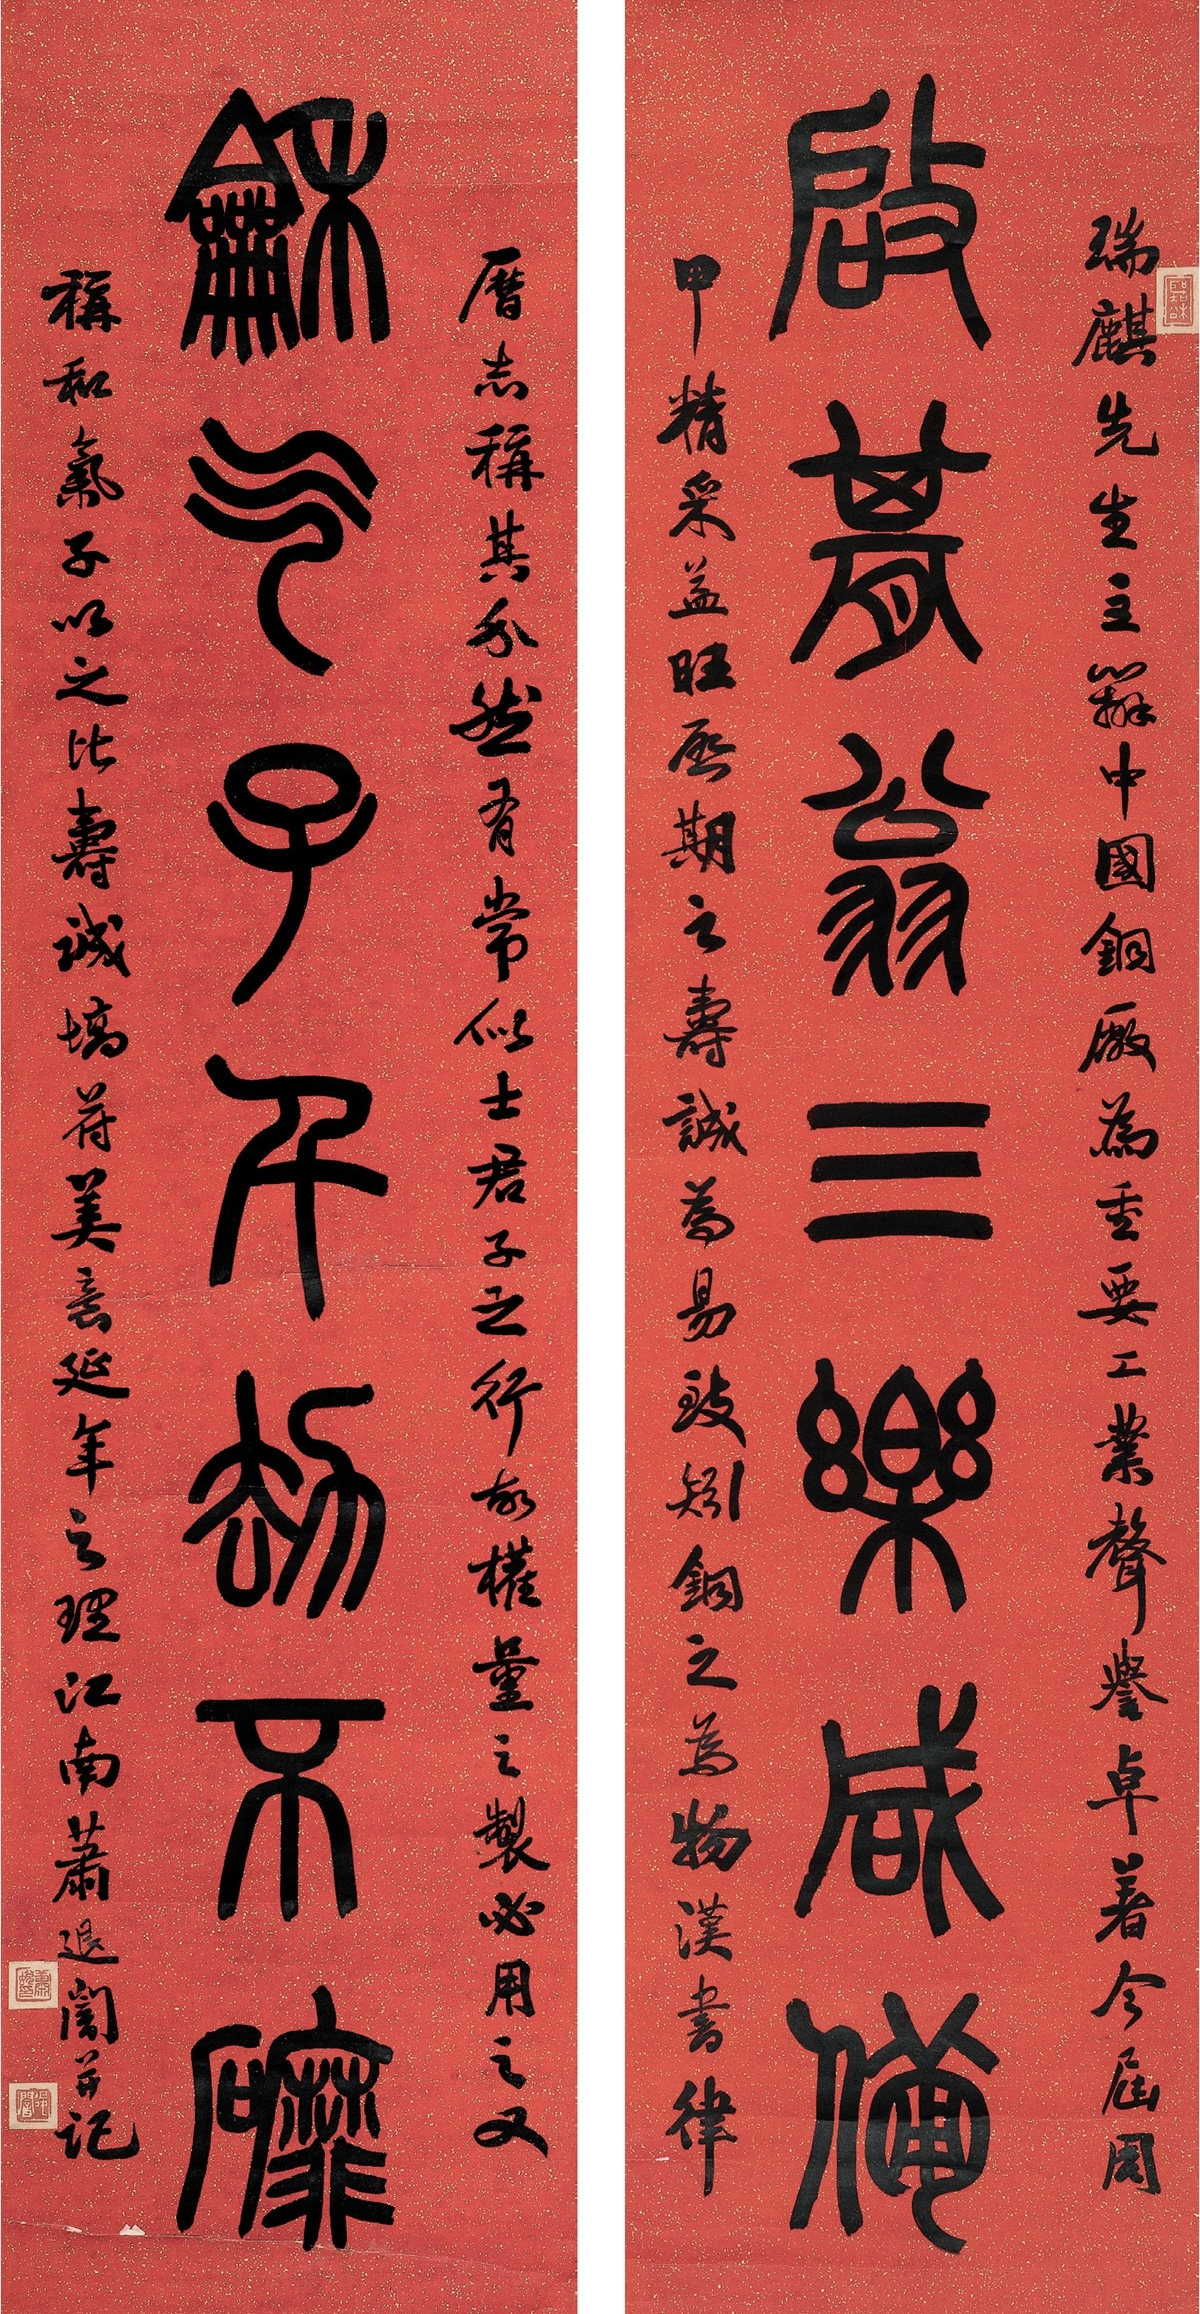 瑞麒先生主辦中國銅廠為重要工業聲譽卓著今屆周
啟朞翁三樂咸備
甲精采益旺启期之壽誠為易致矧銅之為物漢書律
曆志稱其介然有常似士君子之行故權量之製必用之又
龢气子千劫不磨
稱和氣子以之比壽誠堪符美意延年之理江南蕭退闇并記